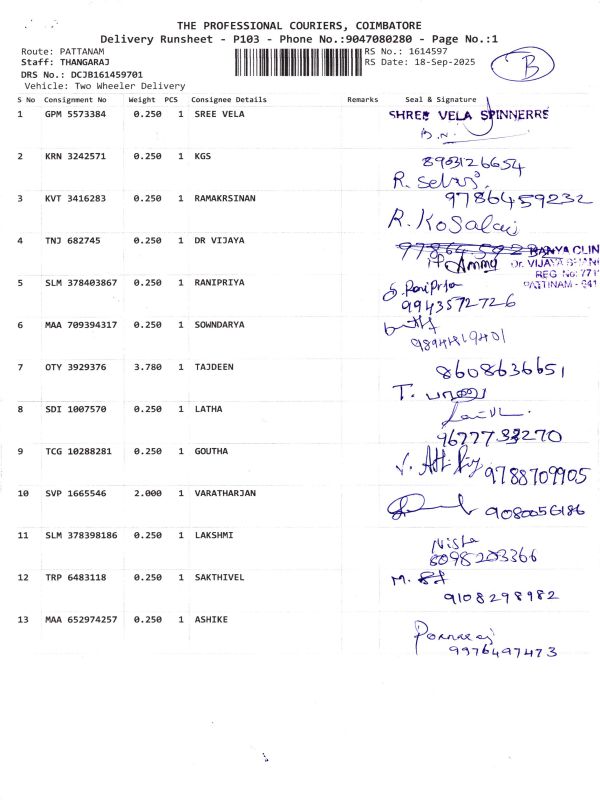 THE PROFESSIONAL COURIERS, COIMBATORE
Delivery Runsheet - P103 - Phone No.:9047080280 - Page No.:1
Route: PATTANAM
RS No.: 1614597
Staff: THANGARAJ
RS Date: 18-Sep-2025
B
DRS No.: DCJB161459701
Vehicle: Two Wheeler Delivery
S No Consignment No Weight PCS Consignee Details Remarks Seal & Signature
1 GPM 5573384 0.250 1 SREE VELA SHREE VELA SPINNERRS
2 KRN 3242571 0.250 1 KGS 8903126654
R. Selvi
3 KVT 3416283 0.250 1 RAMAKRSINAN 9786459232
R. Kosalai
4 TNJ 682745 0.250 1 DR VIJAYA
Ammu
Dr. VIJAYA
REG No: 771
PATTINAM - 641
5 SLM 378403867 0.250 1 RANIPRIYA S. RaniPriya
9943572726
6 MAA 709394317 0.250 1 SOWNDARYA
7 OTY 3929376 3.780 1 TAJDEEN 8608636651
8 SDI 1007570 0.250 1 LATHA
9 TCG 10288281 0.250 1 GOUTHA
9788709905
10 SVP 1665546 2.000 1 VARATHARJAN
9080056186
11 SLM 378398186 0.250 1 LAKSHMI Nisha
8098203366
12 TRP 6483118 0.250 1 SAKTHIVEL
9108298982
13 MAA 652974257 0.250 1 ASHIKE Ponnaraj
9976497473